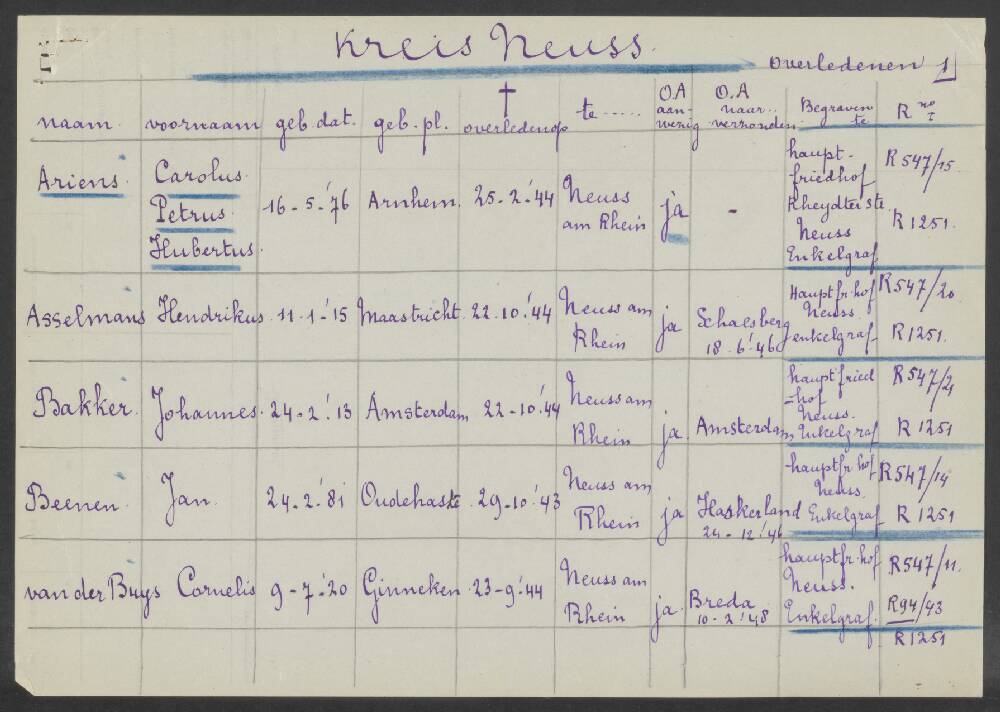 Kreis Neuss.
overledenen 1
naam. voornaam geb. dat. geb. pl. † overleden op te ...... O.A aan-wezig O.A naar.. verzonden. Begraven te R no I
Ariens. Carolus Petrus Hubertus. 16-5-'76 Arnhem. 25-2-'44 Neuss am Rhein ja - haupt-friedhof Rheydterste Neuss Enkelgraf R547/15 R1251.
Asselmans Hendrikus 11-1-'15 Maastricht. 22-10-'44 Neuss am Rhein ja Schaesberg 18-6-'46 Hauptfr.hof Neuss. enkelgraf R547/20 R1251.
Bakker. Johannes. 24-2-'13 Amsterdam 22-10-'44 Neuss am Rhein ja. Amsterdam hauptfried=hof Neuss. Enkelgraf R547/21 R1251
Beenen. Jan. 24-2-'81 Oudehaske 29-10-'43 Neuss am Rhein ja Haskerland 24-12-'46 hauptfr.hof Neuss. Enkelgraf R547/14 R1251
van der Buys Cornelis 9-7-'20 Ginneken 23-9-'44 Neuss am Rhein ja. Breda 10-2-'48 hauptfr.hof Neuss. Enkelgraf. R547/11. R94/43 R1251